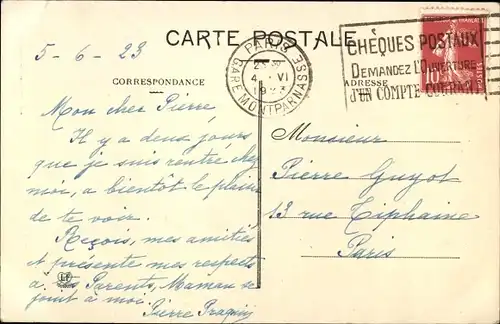 CARTE POSTALE
5-6-23
CORRESPONDANCE
ADRESSE
PARIS
GARE MONTPARNASSE
4 VI
CHÈQUES POSTAUX
DEMANDEZ L'OUVERTURE
d'UN COMPTE COURANT
10
Mon cher Pierre
Il y a deux jours
que je suis rentré chez
moi, a bientôt le plaisir
de te voir.
Reçois, mes amitiés
et présente mes respects
à tes Parents, Maman se
joint à moi.
Pierre
Monsieur
Pierre Guyot
13 rue Tiphaine
Paris